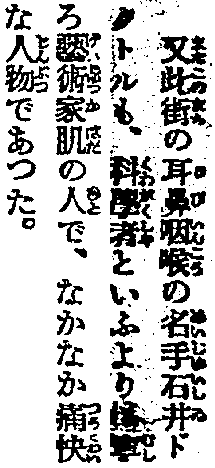 又此街の耳鼻咽喉の名手石井ド
クトルも、科學者といふより寧
ろ藝術家肌の人で、なかなか痛快
な人物であつた。